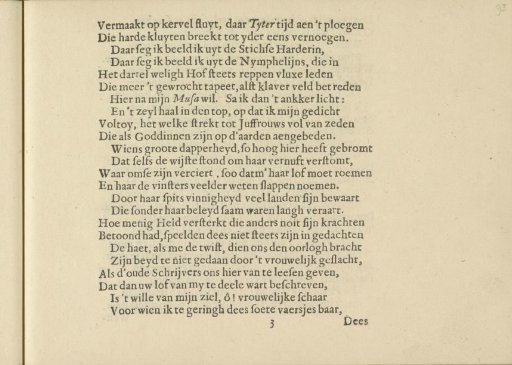 Vermaakt op kervel fluyt, daar Tyter tijd aen 't ploegen
Die harde kluyten breekt tot yder eens vernoegen.
Daar seg ik beeld ik uyt de Stichse Harderin,
Daar seg ik beeld ik uyt de Nymphelijns, die in
Het dartel weligh Hof steets reppen vluxe leden
Die meer 't gewrocht tapeet, alst klaver veld betreden
Hier na mijn Musa wil. Sa ik dan 't ankker licht:
En 't zeyl haal in den top, op dat ik mijn gedicht
Voltoy, het welke strekt tot Juffrouws vol van zeden
Die als Goddinnen zijn op d'aarden aengebeden.
Wiens groote dapperheyd, so hoog hier heeft gebromt
Dat selfs de wijste stond om haar vernuft verstomt,
Waar om se zijn verciert, soo datm' haar lof moet roemen
En haar de vinsters veelder weten slappen noemen.
Door haar spits vinnigheyd veel landen sijn bewaart
Die sonder haar beleyd saam waren langh veraart.
Hoe menig Held versterkt die anders noit sijn krachten
Betoond had, speelden dees niet steets zijn in gedachten
De haet, als me de twist, dien ons den oorlogh bracht
Zijn beyd te niet gedaan door 't vrouwelijk geslacht,
Als d'oude Schrijvers ons hier van te leesen geven,
Dat dan uw lof van my te deele wart beschreven,
Is 't wille van mijn ziel, ô! vrouwelijke schaar
Voor wien ik te geringh dees soete vaersjes baar,
3 Dees